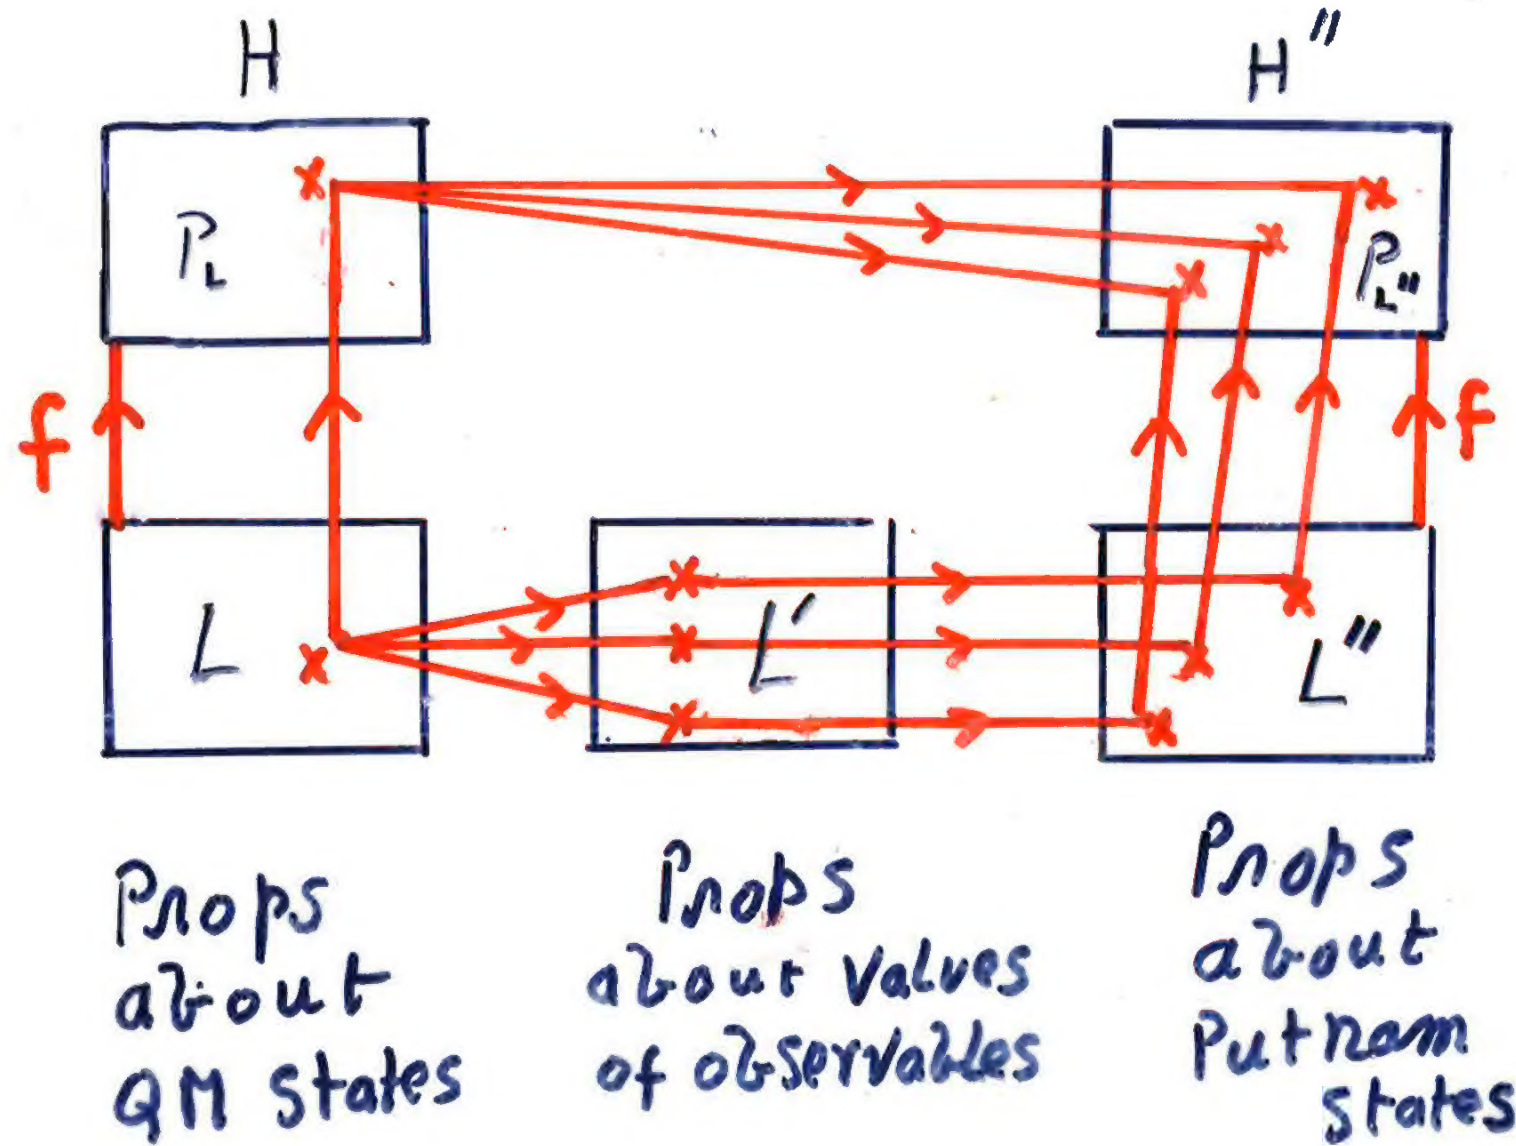 H
H"
P_L
P_L"
f
f
L
L'
L"
Props
about
QM states
Props
about values
of observables
Props
about
Putnam
states